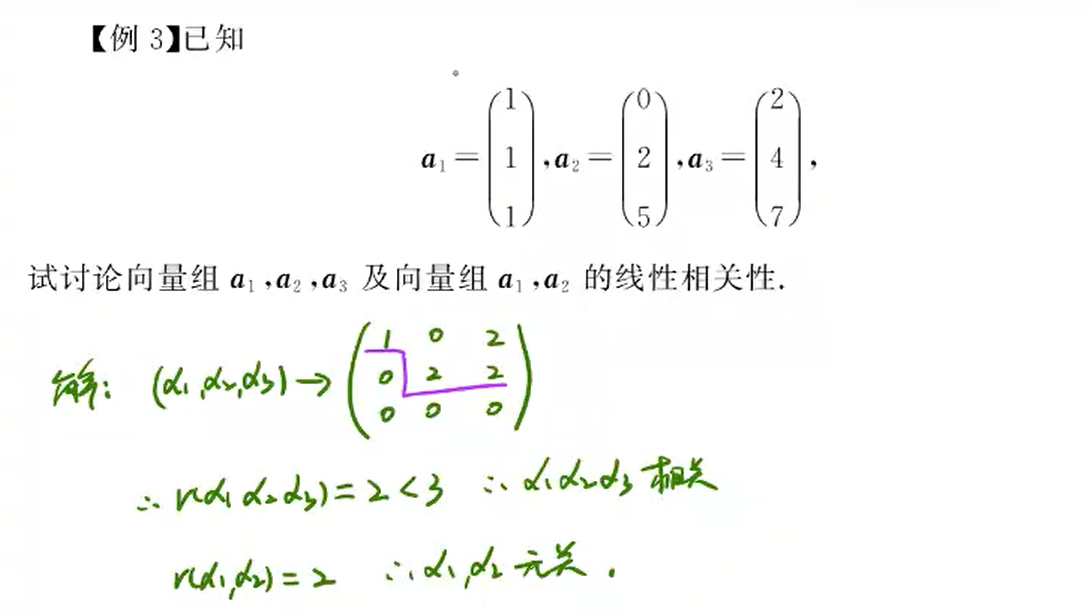 【例 3】已知
a₁=(1 1 1),a₂=(0 2 5),a₃=(2 4 7),
试讨论向量组 a₁,a₂,a₃ 及向量组 a₁,a₂ 的线性相关性.
解: (α₁,α₂,α₃)→(1 0 2
0 2 2
0 0 0)
∴ r(α₁ α₂ α₃)=2<3 ∴ α₁α₂α₃ 相关
r(α₁,α₂)=2 ∴ α₁,α₂ 无关.